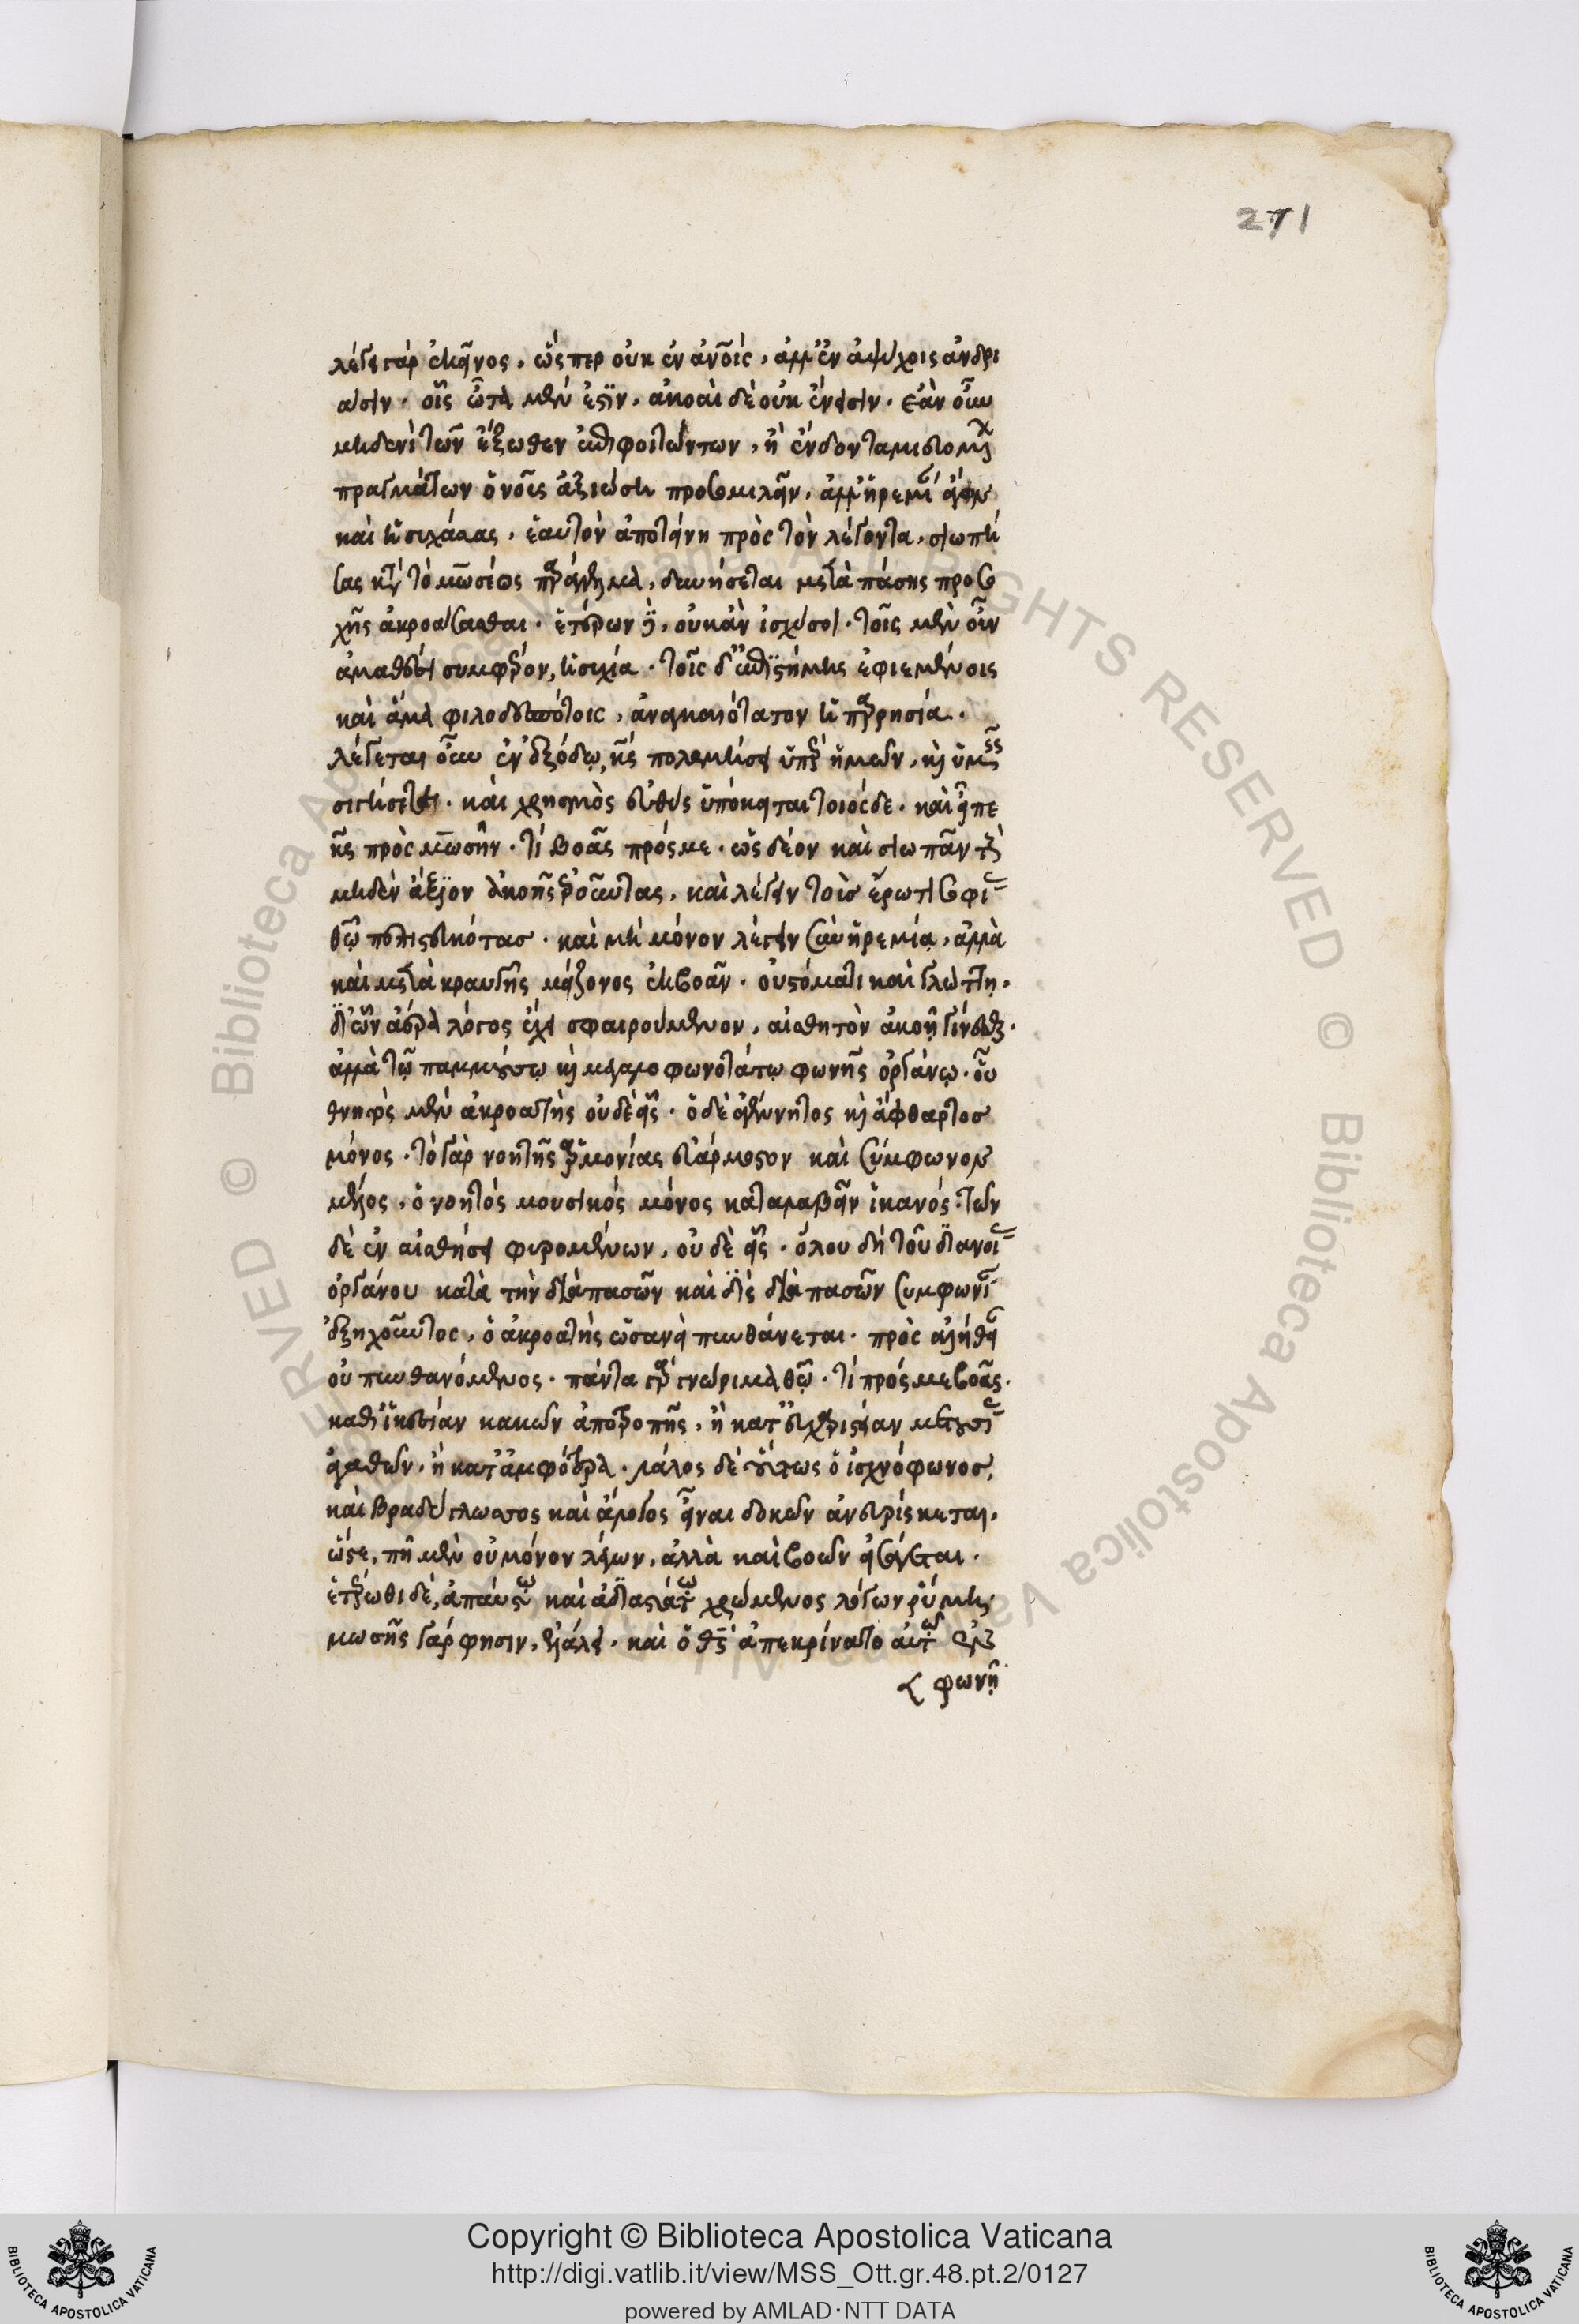 λέγει γὰρ ἐκεῖνος, ὥς περ οὐκ ἐν ἀν̅οις, ἀλλ' ἐν ἀψύχοις ἀνδρι
άσιν. οἷς ὦτα μέν ἐστιν, ἀκοαὶ δὲ οὐκ ἔνεισιν. ἐὰν οὖν
μηδενὶ τῶν ἔξωθεν ἐπιφοιτώντων, ἢ ἔνδον ταμιευομ
πραγμάτων ὁ νοῦς ἀξιώσῃ προσομιλεῖν, ἀλλ' ἠρεμίαν ἄγων
καὶ ἡσυχάσας, ἑαυτὸν ἀποτείνῃ πρὸς τὸν λέγοντα, σιωπή
σας κατὰ τὸ μωσέως παράγγελμα, δυνήσεται μετὰ πάσης προσο
χῆς ἀκροάσασθαι. ἑτέρων δὲ, οὐκ ἂν ἰσχύσοι. τοῖς μὲν οὖν
ἀμαθέσι συμφέρον, ἡσυχία. τοῖς δ' ἐπιστήμης ἐφιεμένοις
καὶ ἅμα φιλοδεσπότοις, ἀναγκαιότατον ἡ παρρησία.
λέγεται οὖν ἐν ἐξόδῳ, κς πολεμήσει ὑπὲρ ἡμῶν, καὶ ὑμεῖς
σιγήσετε. καὶ χρησμὸς εὐθὺς ὑπόκειται τοιόςδε. καὶ εἶπε
κς πρὸς μωσῆν. τί βοᾷς πρός με. ὡς δέον καὶ σιωπᾶν τοὺς
μηδὲν ἄξιον ἀκοῆς ἐροῦντας, καὶ λέγειν τοὺς ἔρωτι σοφίας
θείῳ πεπιστευκότας. καὶ μὴ μόνον λέγειν σὺν ἠρεμίᾳ, ἀλλὰ
καὶ μετὰ κραυγῆς μείζονος ἐκβοᾶν. οὐ στόματι καὶ γλώττῃ.
δι' ὧν ἀέρα λόγος ἔχει σφαιρούμενον, αἰσθητὸν ἀκοῇ γίνεσθαι.
ἀλλὰ τῷ παμμούσῳ καὶ μεγαλοφωνοτάτῳ φωνῆς ὀργάνῳ. οὗ
θνητὸς μὲν ἀκροατὴς οὐδὲ εἷς. ὁ δὲ ἀγέννητος καὶ ἄφθαρτος
μόνος. τὸ γὰρ νοητῆς ἁρμονίας εὐάρμοστον καὶ σύμφωνον
μέλος, ὁ νοητὸς μουσικός μόνος καταλαβεῖν ἱκανός. τῶν
δὲ ἐν αἰσθήσει φυρομένων, οὐ δὲ εἷς. ὅλου δὴ τοῦ διανοίας
ὀργάνου κατὰ τὴν διὰ πασῶν καὶ δὶς διὰ πασῶν συμφωνίαν
ἐξηχοῦντος, ὁ ἀκροατὴς ὡσανεὶ πυνθάνεται. πρὸς ἀλήθειαν
οὐ πυνθανόμενος. πάντα γὰρ γνώριμα θῷ. τί πρός με βοᾷς.
καθ' ἱκεσίαν κακῶν ἀποτροπῆς, ἢ κατ' εὐχαριστίαν μετουσίας
ἀγαθῶν, ἢ κατ' ἀμφότερα. λάλος δὲ οὕτως ὁ ἰσχνόφωνος,
καὶ βραδύγλωσσος καὶ ἄλογος εἶναι δοκῶν ἀνευρίσκεται.
ὥστε, πῆ μὲν οὐ μόνον λέγων, ἀλλὰ καὶ βοῶν εἰσάγεται.
ἑτέρωθι δὲ, ἀπαύστῳ καὶ ἀδιαστάτῳ χρώμενος λόγων ῥύμῃ
μωσῆς γάρ φησιν, ἐλάλει. καὶ ὁ θς ἀπεκρίνατο αὐτῷ ἐν
φωνῇ